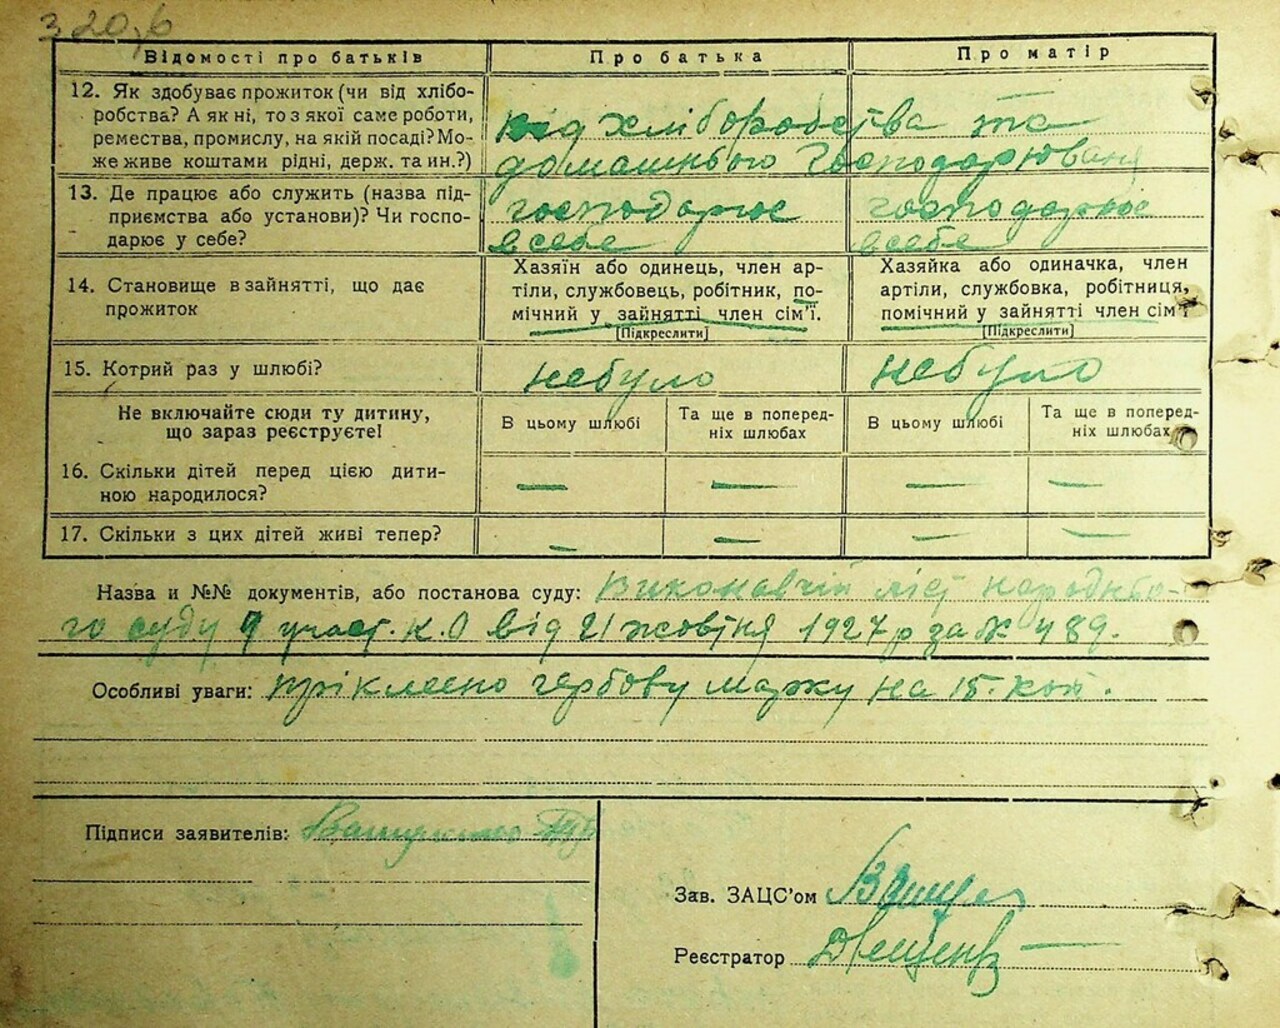 320,6
Відомості про батьків
Про батька
Про матір
12. Як здобуває прожиток (чи від хлібо-
робства? А як ні, то з якої саме роботи,
ремества, промислу, на якій посаді? Мо-
же живе коштами рідні, держ. та ин.?)
від хліборобства та
домашнього господарюваня
13. Де працює або служить (назва під-
приємства або установи)? Чи госпо-
дарює у себе?
господарює
в себе
господарює
в себе
14. Становище в зайнятті, що дає
прожиток
Хазяїн або одинець, член ар-
тіли, службовець, робітник, по-
мічний у зайнятті член сім'ї.
[Підкреслити]
Хазяйка або одиначка, член
артіли, службовка, робітниця,
помічний у зайнятті член сім'ї
[Підкреслити]
15. Котрий раз у шлюбі?
небуло
небуло
Не включайте сюди ту дитину,
що зараз реєструєте!
В цьому шлюбі
Та ще в поперед-
ніх шлюбах
В цьому шлюбі
Та ще в поперед-
ніх шлюбах
16. Скільки дітей перед цією дити-
ною народилося?
— — — —
17. Скільки з цих дітей живі тепер?
— — — —
Назва и №№ документів, або постанова суду: Виконавчий ліст народньо-
го суду 9 участ. К.О від 21 жовтня 1927 р за № 489.
Особливі уваги: пріклеєно гербову маржу на 15. коп.
Підписи заявителів:
Зав. ЗАЦС'ом
Реєстратор